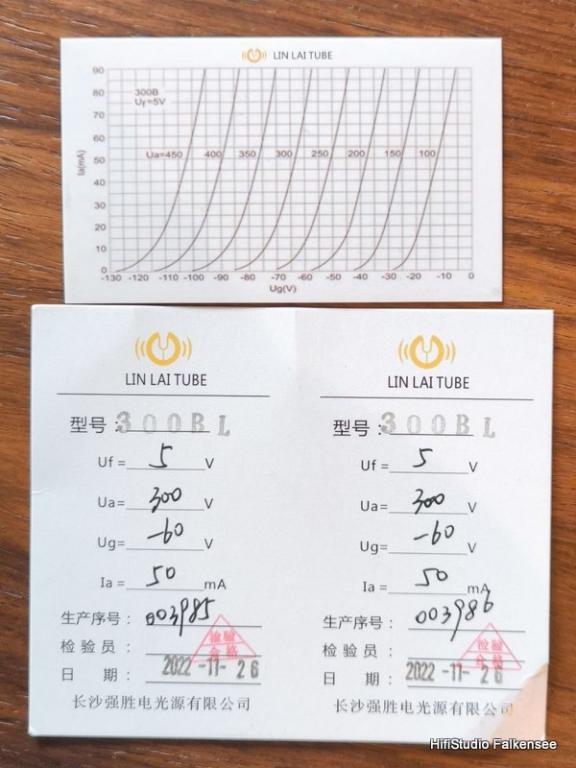 LIN LAI TUBE
300B
Uf=5V
Ia(mA)
90
80
70
60
50
40
30
20
10
0
Ua=450 400 350 300 250 200 150 100
-130 -110 -100 -90 -80 -70 -60 -50 -40 -30 -20 -10 0
Ug(V)
LIN LAI TUBE
型号：300BL
Uf = 5 V
Ua= 300 V
Ug= -60 V
Ia = 50 mA
生产序号：003985
检验员：
检验
合格
日 期：2022-11-26
长沙强胜电光源有限公司
LIN LAI TUBE
型号：300BL
Uf = 5 V
Ua= 300 V
Ug= -60 V
Ia = 50 mA
生产序号：003986
检验员：
检验
合格
日 期：2022-11-26
长沙强胜电光源有限公司
HifiStudio Falkensee